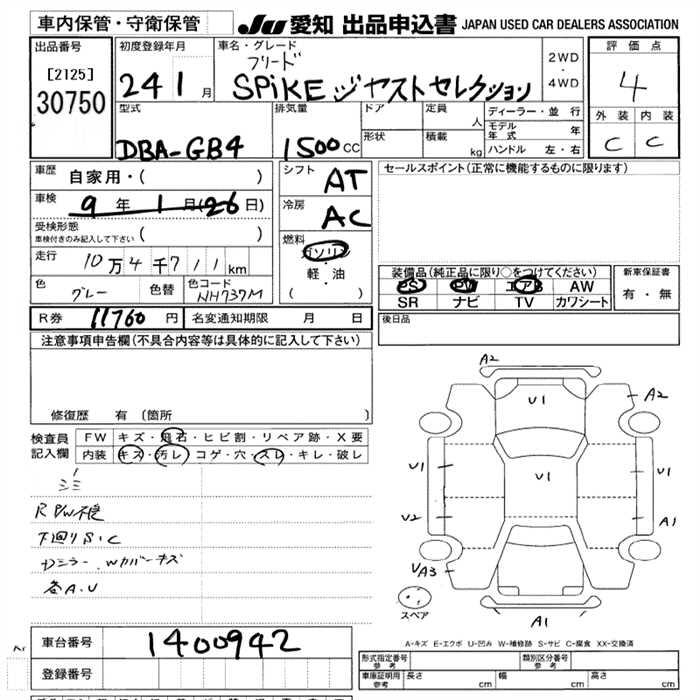 車内保管・守衛保管
JU 愛知 出品申込書 JAPAN USED CAR DEALERS ASSOCIATION
出品番号
[2125]
30750
初度登録年月
24 1 月
車名・グレード
フリード
SPiKE ジャストセレクション
2WD
・
4WD
評価点
4
外装 内装
C C
型式
DBA-GB4
排気量
1500 CC
ドア
形状
定員
人
積載
kg
ディーラー・並行
モデル年式 年
ハンドル 左・右
車歴
自家用・( )
車検
9 年 1 月(26日)
受検形態
車検付きのみ記入して下さい ( )
走行
10万4千711km
色
グレー
色替
色コード
NH737M
シフト
AT
冷房
AC
燃料
ガソリン
・
軽・油
( )
セールスポイント(正常に機能するものに限ります)
装備品(純正品に限り○をつけてください)
PS PW エアB AW
SR ナビ TV カワシート
新車保証書
有・無
R券 11760 円 名変通知期限 月 日
後日品
注意事項申告欄(不具合内容等は具体的に記入して下さい)
修復歴 有(箇所 )
検査員記入欄
FW キズ・飛石・ヒビ割・リペア跡・X要
内装 キズ・汚レ・コゲ・穴・スレ・キレ・破レ
シミ
R PW不良
下回りS.C
Dミラー.Wカバーキズ
各A.U
A2
U1
A2
U1
U1
U1
U2
A1
VA3
スペア
A1
A-キズ E-エクボ U-凹み W-補修跡 S-サビ C-腐食 XX-交換済
車台番号
1400942
登録番号
形式指定番号
参考
類別区分番号
参考
車庫証明用
参考
長さ cm 幅 cm 高さ cm